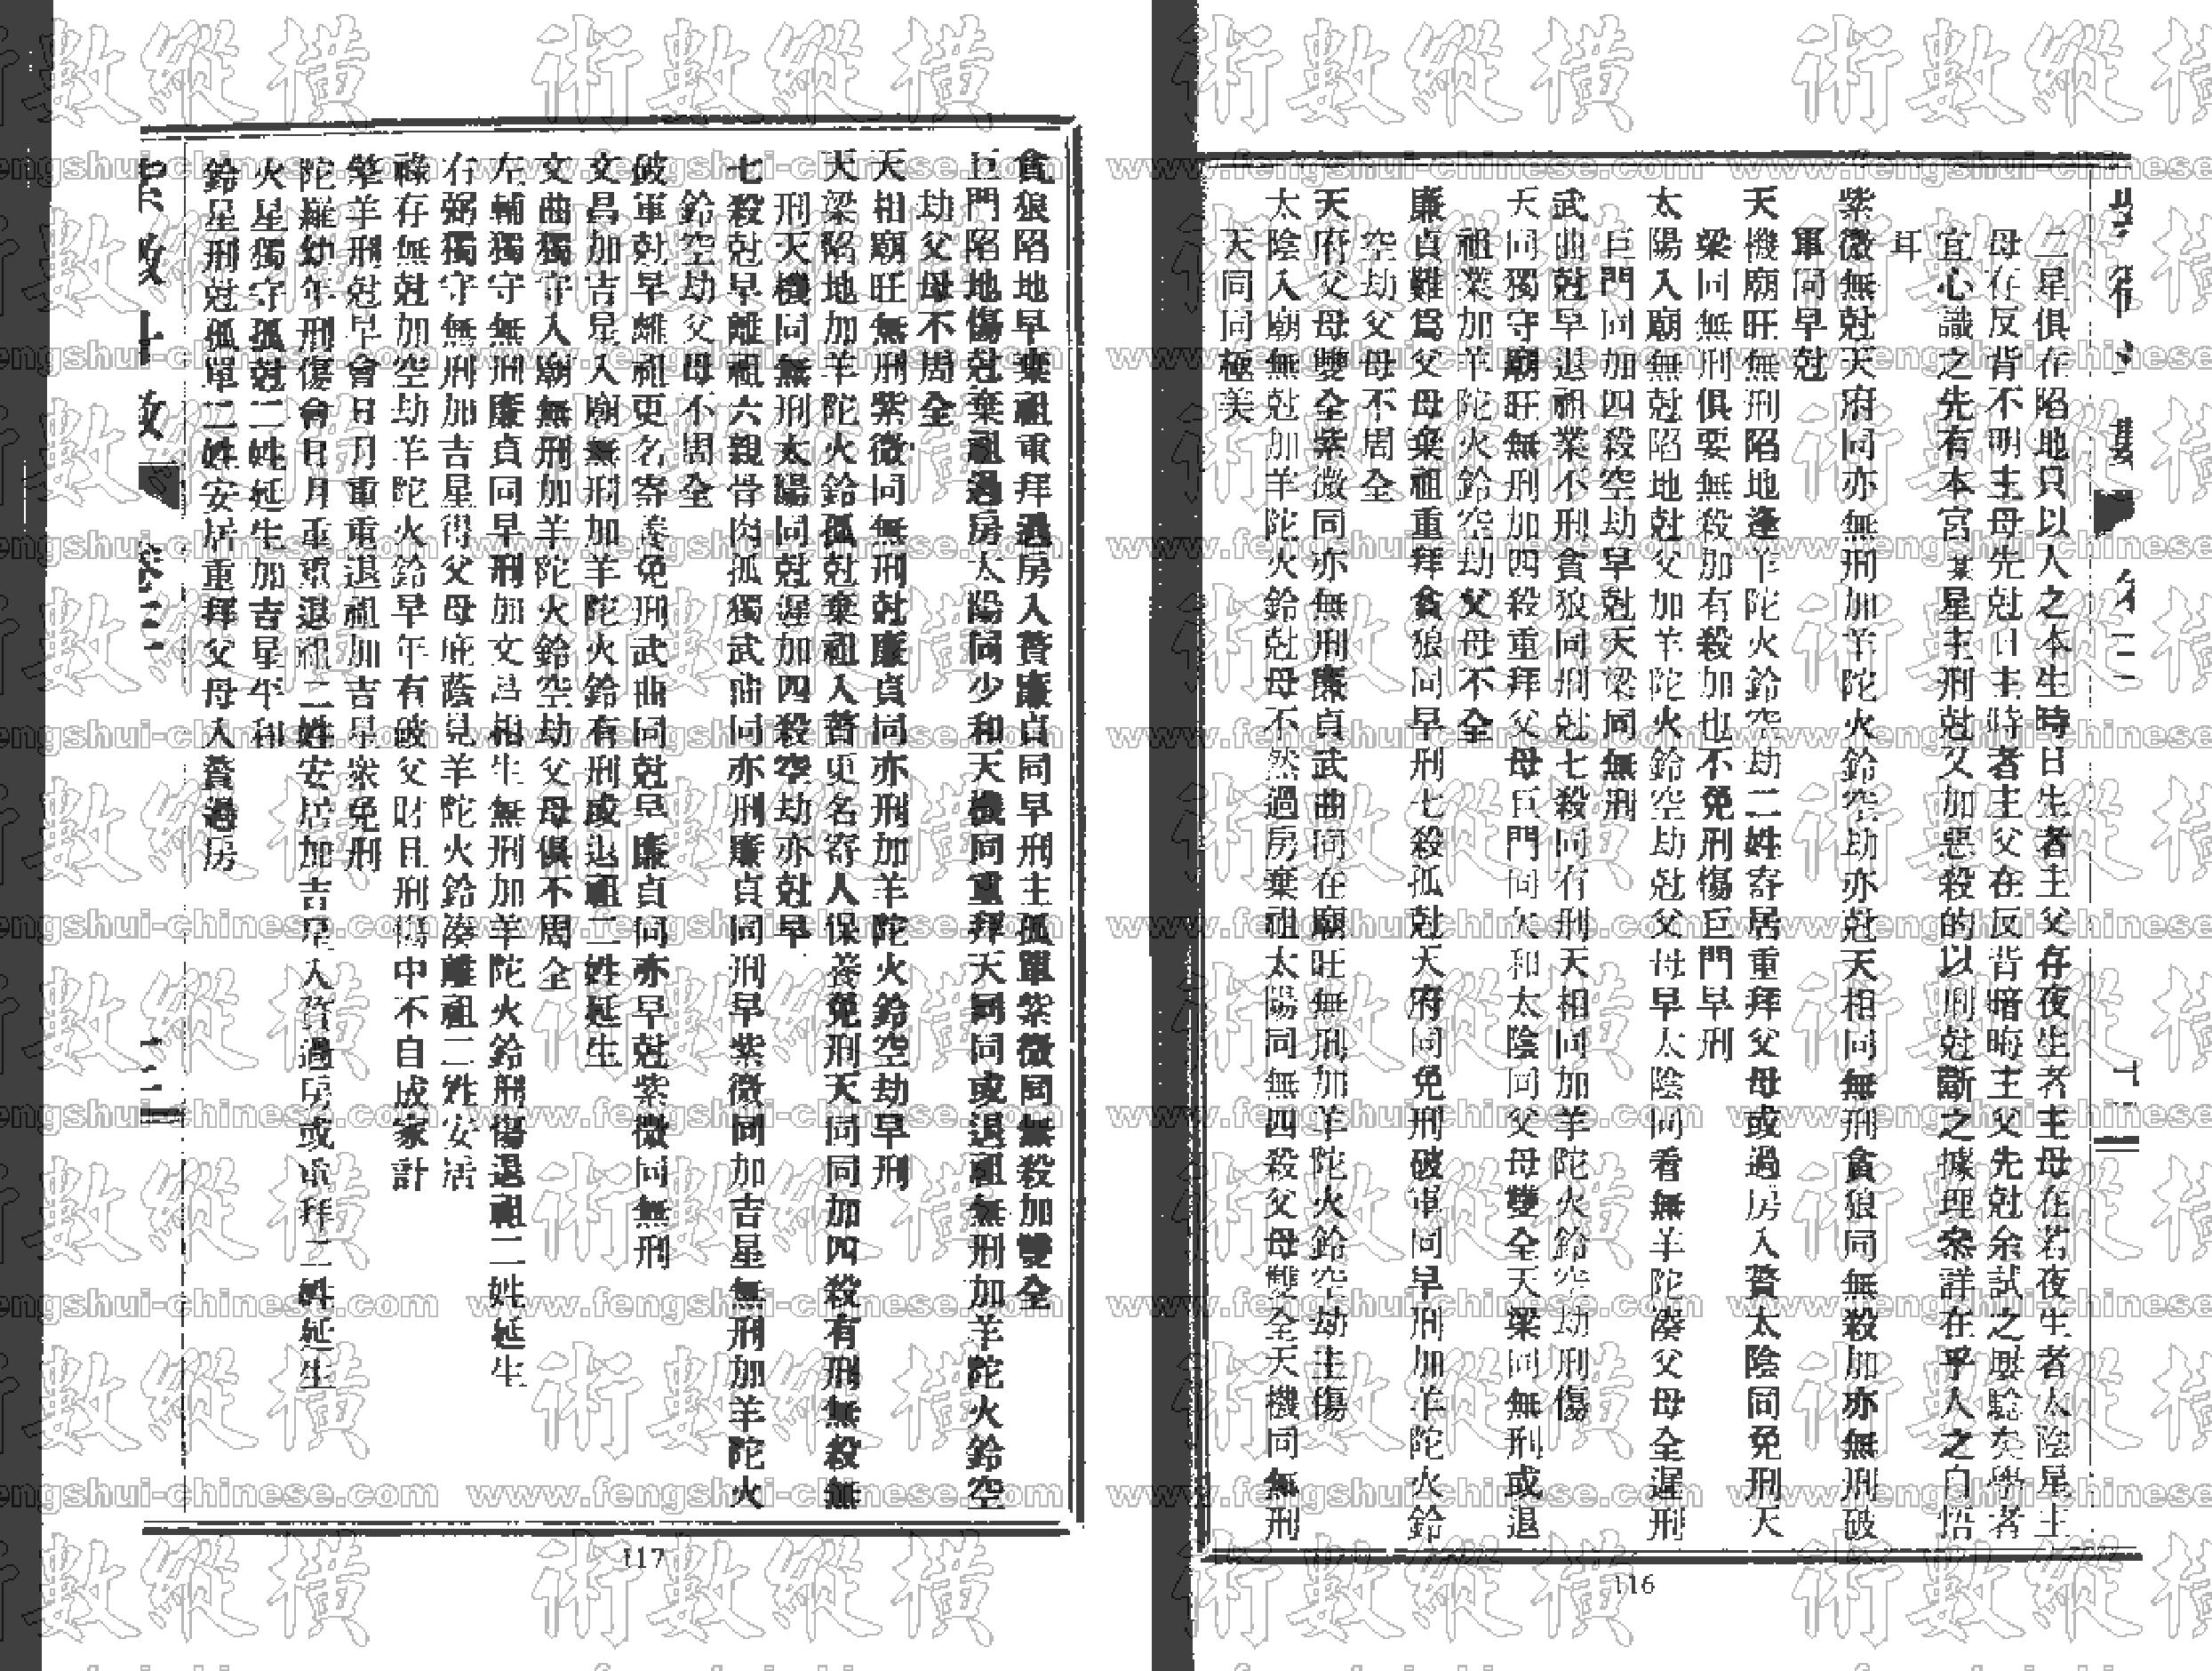 二星俱在陷地只以人之本生時日生者主父存夜生者主母在若夜生者太陰星主
母存反背不明主母先尅日主時者主父在反背暗晦主父先尅余試之屢驗矣學者
宜心識之先有本宮某星主刑尅又加惡殺的以刑尅斷之據理參詳在乎人之自悟
耳
紫微無尅天府同亦無刑加羊陀火鈴空劫亦尅天相同無刑貪狼同無殺加亦無刑破
軍同早尅
天機廟旺無刑陷地逢羊陀火鈴空劫二姓寄居重拜父母或過房入贅太陰同免刑天
梁同無刑俱要無殺加有殺加也不免刑傷巨門早刑
太陽入廟無尅陷地尅父加羊陀火鈴空劫尅父母早太陰同看無羊陀湊父母全遲刑
巨門同加四殺空劫早尅天梁同無刑
武曲尅早退祖業不刑貪狼同刑尅七殺同有刑天相同加羊陀火鈴空劫刑傷
天同獨守廟旺無刑加四殺重拜父母巨門同欠和太陰同父母雙全天梁同無刑或退
祖業加羊陀火鈴空劫父母不全
廉貞難為父母棄祖重拜貪狼同早刑七殺孤尅天府同免刑破軍同早刑加羊陀火鈴
空劫父母不周全
天府父母雙全紫微同亦無刑廉貞武曲同在廟旺無刑加羊陀火鈴空劫主傷
太陰入廟無尅加羊陀火鈴尅母不然過房棄祖太陽同無四殺父母雙全天機同無刑
天同同極美
116
貪狼陷地早棄祖重拜過房入贅廉貞同早刑主孤單紫微同無殺加雙全
巨門陷地傷尅棄祖過房太陽同少和天機同重拜天同同或退祖無刑加羊陀火鈴空
劫父母不周全
天相廟旺無刑紫微同無刑尅廉貞同亦刑加羊陀火鈴空劫早刑
天梁陷地加羊陀火鈴孤尅棄祖入贅更名寄人保養免刑天同同加四殺有刑無殺無
刑天機同無刑太陽同尅遲加四殺空劫亦尅早
七殺尅早離祖六親骨肉孤獨武曲同亦刑廉貞同刑早紫微同加吉星無刑加羊陀火
鈴空劫父母不周全
破軍尅早離祖更名寄養免刑武曲同尅早廉貞同亦早尅紫微同無刑
文昌加吉星入廟無刑加羊陀火鈴有刑或退祖二姓延生
文曲獨守入廟無刑加羊陀火鈴空劫父母俱不周全
左輔獨守無刑廉貞同早刑加文昌相生無刑加羊陀火鈴刑傷退祖二姓延生
右弼獨守無刑加吉星得父母庇蔭見羊陀火鈴湊離祖二姓安居
祿存無尅加空劫羊陀火鈴早年有破父財且刑傷中不自成家計
擎羊刑尅早會日月重重退祖加吉星眾免刑
陀羅幼年刑傷會日月重重退祖二姓安居加吉星入贅過房或重拜二姓延生
火星獨守孤尅二姓延生加吉星平和
鈴星刑尅孤單二姓安居重拜父母入贅過房
117
術數縱橫
www.fengshui-chinese.com